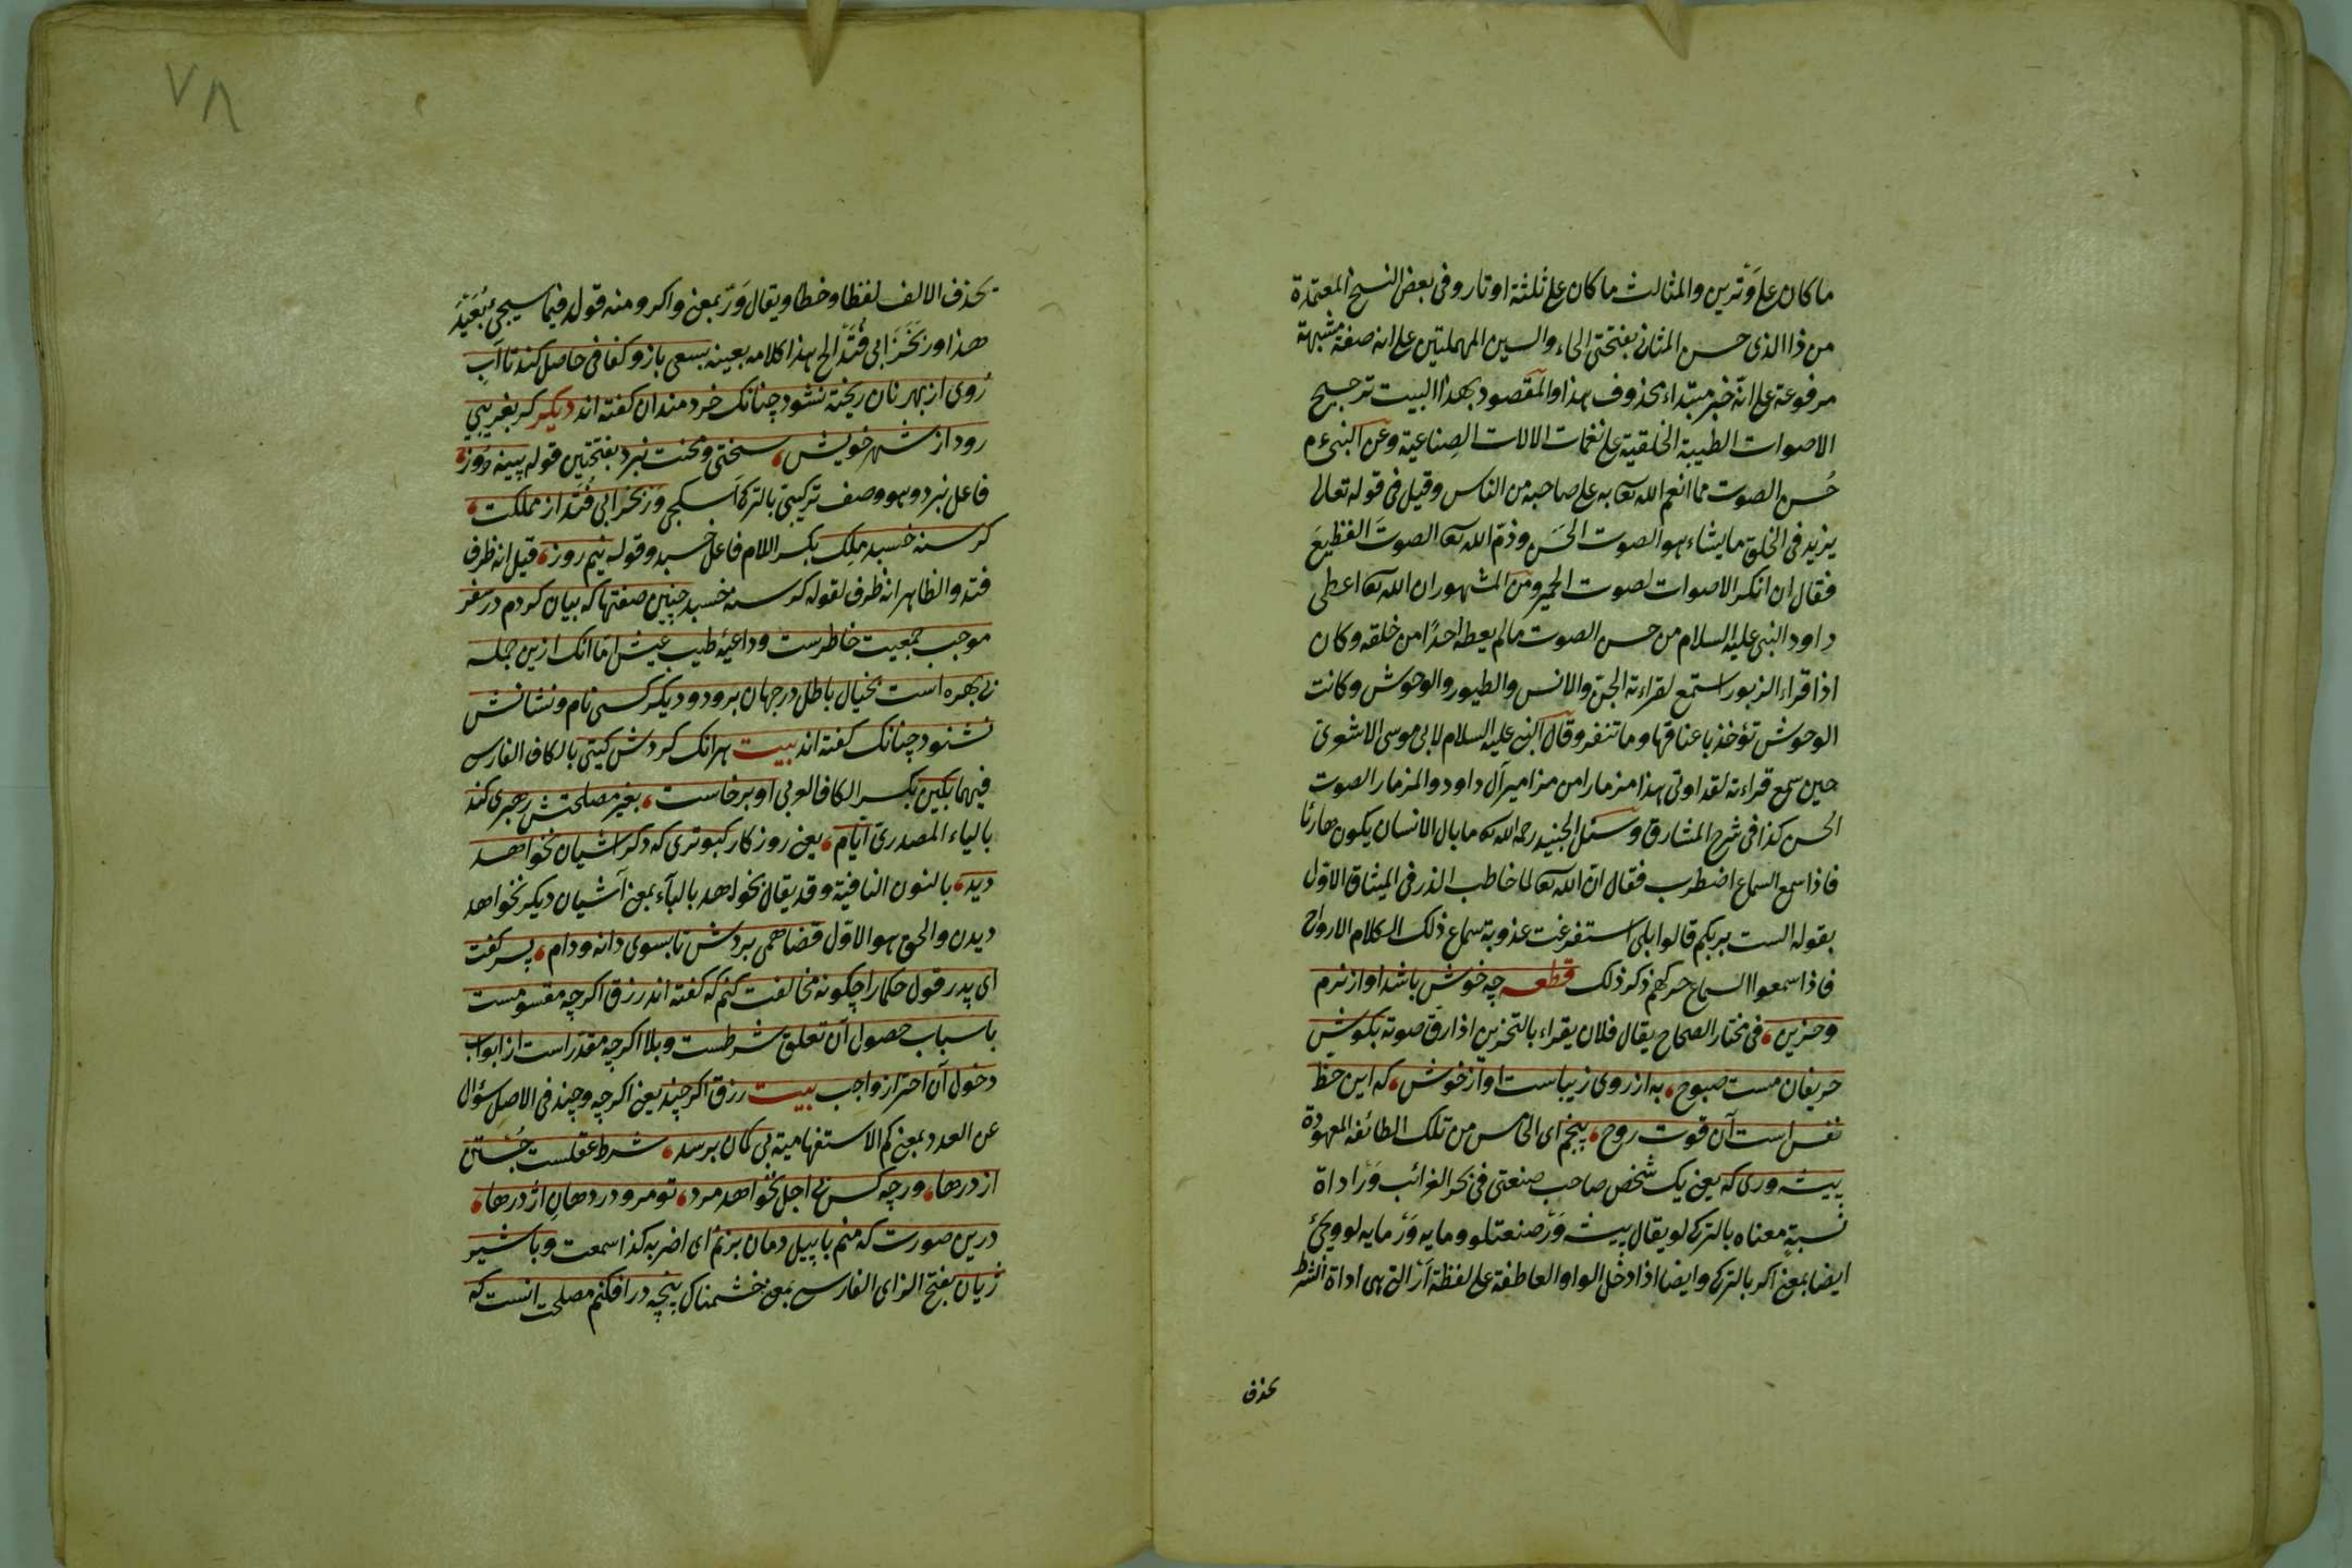 ما كان على وَتَرين والمثالث ما كان على ثلثة اوتار وفى بعض النسخ المعتمدة
من ذا الذى حسن المثانى بفتحتى الحاء والسين المهملتين على انه صفة مشبهة
مرفوعة على انّه خبر مبتداء محذوف هذا والمقصود بهذا البيت ترجيح
الاصوات الطيبة الخلقية على نغمات الالات الصِناعية وعن النبى ءم
حُسن الصوت مما انعم الله تعا به على صاحبه من الناس وقيل فى قوله تعالى
يزيد فى الخلق ما يشاء هو الصوت الحَسَن وذمّ الله تعا الصوتَ الفظيعَ
فقال ان انكر الاصوات لصوت الحمير ومن المشهور ان الله تعا اعطى
داود النبى عليه السلام من حسن الصوت ما لم يعطه احدًا من خلقه وكان
اذا قراء الزبور استمع لقراءته الجن والانس والطيور والوحوش وكانت
الوحوش تؤخذ باعناقها وما تنفر وقال النبى عليه السلام لابى موسى الاشعرىّ
حين سمع قراءته لقد اوتى هذا مزمارا من مزامير آل داود والمزمار الصوت
الحسن كذا فى شرح المشارق وسئل الجنيد رحمه الله تعا ما بال الانسان يكون هادئا
فاذا سمع السماع اضطرب فقال انّ الله تعا لما خاطب الذر فى الميثاق الاوّل
بقوله الست بربكم قالوا بلى استفرغت عذوبة سماع ذلك الكلام الارواح
فاذا سمعوا السماع حركهم ذكر ذلك قطعه چه خوش باشد اواز نرم
وحزين، فى مختار الصحاح يقال فلان يقراء بالتحزين اذا رقّ صوته بكوش
حريفان مست صبوح، به از روى زيباست اواز خوش، كه اين حظ
نفس است آن قوت روح، پنجم اى الخامس من تلك الطائفه المعهودة
پيشه ورى كه يعنى يك شخص صاحب صنعتى فى بحر الغرائب وَرْ اداة
نسبةٍ معناه بالتركى لو يقال پيشه وَرْ صنعتلو ومايه وَرْ مايه لو ويجئ
ايضا بمعنى اكر بالتركى وايضا اذا دخل الواو العاطفة على لفظة اَرْ التى هى اداة الشرط
بحذف
٧٨
بحذف الالف لفظا وخطا ويقال وَرْ بمعنى واكر ومنه قوله فيما سيجئ بُعَيْدَ
هذا ور بخرابى فُتَد الخ هذا كلامه بعينه بسعى بازو كفافى حاصل كند تا آبِ
رُوى از بهر نان ريخته نشود چنانك خردمندان كفته اند ديكر كر بغريبى
رود از شهر خويش، سختى ومحنت نبرد بفتحتين قوله پينه دُوز،
فاعل نبرد وهو وصف تركيبى بالتركى اَسكيجى وَرْ بخرابى فُتَد از مملكت،
كرسنه خسبد مَلِك بكسر اللام فاعل خسبد وقوله نيم روز، قيل انه ظرف
فتد والظاهر انه ظرف لقوله كرسنه خسبد چنين صفتها كه بيان كردم در سفر
موجب جمعيت خاطرست وداعيۀ طيب عيش امّا آنك ازين جمله
بى بهره است بخيال باطل در جهان برود و ديكر كسى نام ونشانش
نشنود چنانك كفته اند بيت هرانك كردش كيتى بالكاف الفارسى
فيهما بكين بكسر الكاف العربى او برخاست، بغير مصلحتش رهبرى كند
بالياء المصدرىّ ايّام، يعنى روزكار كبوترى كه دكر اشيان نخواهد
ديد، بالنون النافية وقد يقال بخواهد بالباء بمعنى آشيان ديكر نخواهد
ديدن والحق هو الاوّل قضا همى بردش تا بسوى دانه ودام، پسر كفت
اى پدر قول حكما را چكونه مخالفت كنم كه كفته اند رزق اكرچه مقسومست
باسباب حصول آن تعلق شرطست وبلا اكرچه مقدّر است از ابواب
دخول آن احتراز واجب بيت رزق اكر چند يعنى اكرچه وچند فى الاصل سؤال
عن العدد بمعنى كم الاستفهامية بى كمان برسد، شرط عقلست جُستن
از درها، ورچه كس بى اجل نخواهد مرد، تو مرو در دهانِ اژدرها،
درين صورت كه منم با پيل دمان بزنم اى اضربه كذا سمعت وبا شير
ژيان بفتح الزاى الفارسى بمعنى خشمناك پنجه درافكنم مصلحت انست كه